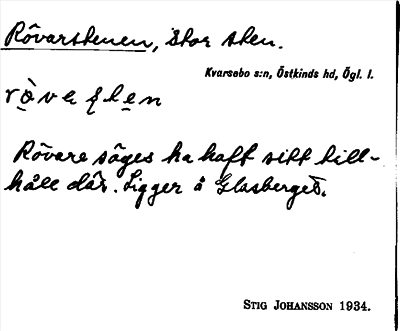 Rövarstenen, stor sten.
Kvarsebo s:n, Östkinds hd, Ögl. l.
Rövare säges ha haft sitt till-
håll där. Ligger å Glasberget.
STIG JOHANSSON 1934.